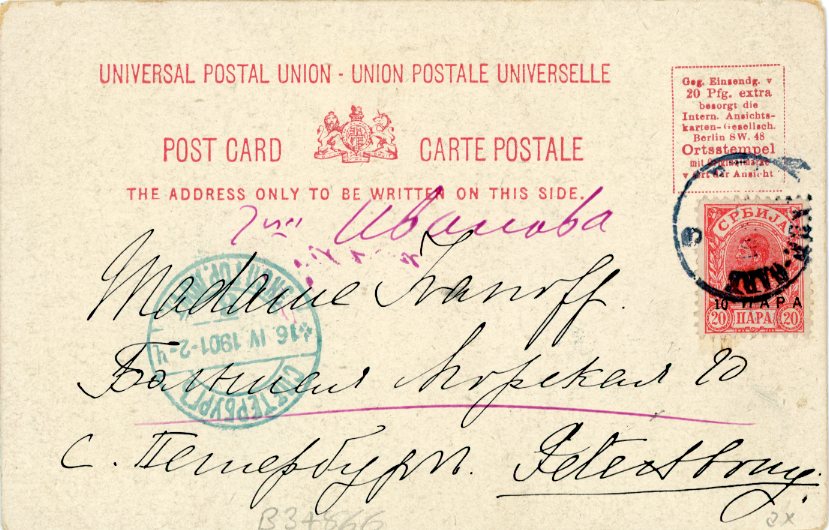 UNIVERSAL POSTAL UNION - UNION POSTALE UNIVERSELLE
POST CARD CARTE POSTALE
THE ADDRESS ONLY TO BE WRITTEN ON THIS SIDE.
Geg. Einsendg. v
20 Pfg. extra
besorgt die
Intern. Ansichts-
karten-Gesellsch.
Berlin SW. 48
Ortsstempel
v Ort der Ansicht
СРБИЈА
10 ПАРА
20 ПАРА 20
Иванова
Madame Ivanoff.
16 IV 1901-2-Ч
С.ПЕТЕРБУРГЪ
Большая Морская 20
С. Петербургъ. Petersbourg.